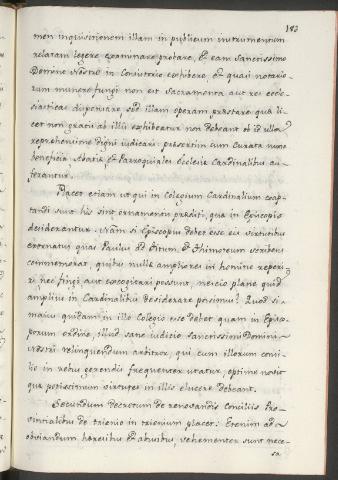 183
men inquisitionem illam in publicum instrumentum
relatam legere examinare probare, & eam Sanctissimo
Domino Nostro in Consistorio exhibere, & quasi notario-
rum munere fungi non est Sacramenta aut res eccle-
siasticas dispensare, sed illam operam præstare qua li-
cet non gratis ab illis exhibeatur non debeant ob id ulla
reprehensione digni iudicari præsertim cum Curata nunc
beneficia Abatiæ & Parroquiales Ecclesiæ Cardinalibus au-
ferantur.
Placet etiam ut qui in Colegium Cardinalium coap-
tandi sunt his sint ornamentis præditi, quæ in Episcopis
desiderantur. Nam si Episcopus debet esse eis virtutibus
exornatus quas Paulus ad Titum, & Thimoteum scribens
commemorat, quibus nullæ ampliores in homine reperi-
ri nec fingi aut excogitari possunt, nescio plane quid
amplius in Cardinalibus desiderare possimus? Quod si
maius quidam in illo Colegio esse debet quam in Episco-
porum ordine, illud sane iudicio Sanctissimi Domini
Nostri relinquendum arbitror, qui cum illorum consi-
lio in rebus gerendis frequenter utatur, optime novit
quæ potissimum virtutes in illis elucere debeant.
Secundum decretum de renovandis Conciliis Pro-
vincialibus de trienio in trienium placet: Etenim ad
obviandum hæresibus & abusibus, vehementer sunt nece-
sa